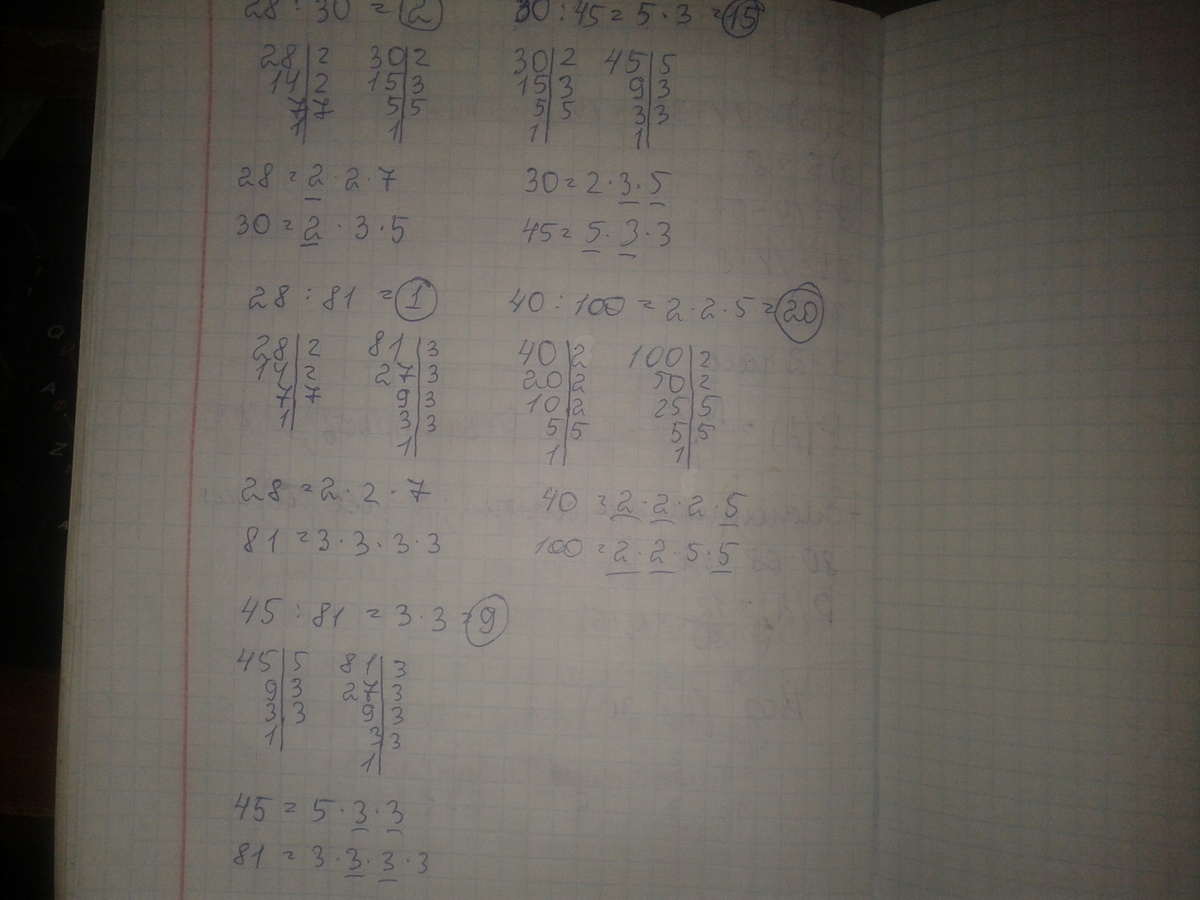 28 : 30 = 2
28 | 2
14 | 2
7 | 7
1 |
30 | 2
15 | 3
5 | 5
1 |
28 = 2 · 2 · 7
30 = 2 · 3 · 5
30 : 45 = 5 · 3 = 15
30 | 2
15 | 3
5 | 5
1 |
45 | 5
9 | 3
3 | 3
1 |
30 = 2 · 3 · 5
45 = 5 · 3 · 3
28 : 81 = 1
28 | 2
14 | 2
7 | 7
1 |
81 | 3
27 | 3
9 | 3
3 | 3
1 |
28 = 2 · 2 · 7
81 = 3 · 3 · 3 · 3
40 : 100 = 2 · 2 · 5 = 20
40 | 2
20 | 2
10 | 2
5 | 5
1 |
100 | 2
50 | 2
25 | 5
5 | 5
1 |
40 = 2 · 2 · 2 · 5
100 = 2 · 2 · 5 · 5
45 : 81 = 3 · 3 = 9
45 | 5
9 | 3
3 | 3
1 |
81 | 3
27 | 3
9 | 3
3 | 3
1 |
45 = 5 · 3 · 3
81 = 3 · 3 · 3 · 3